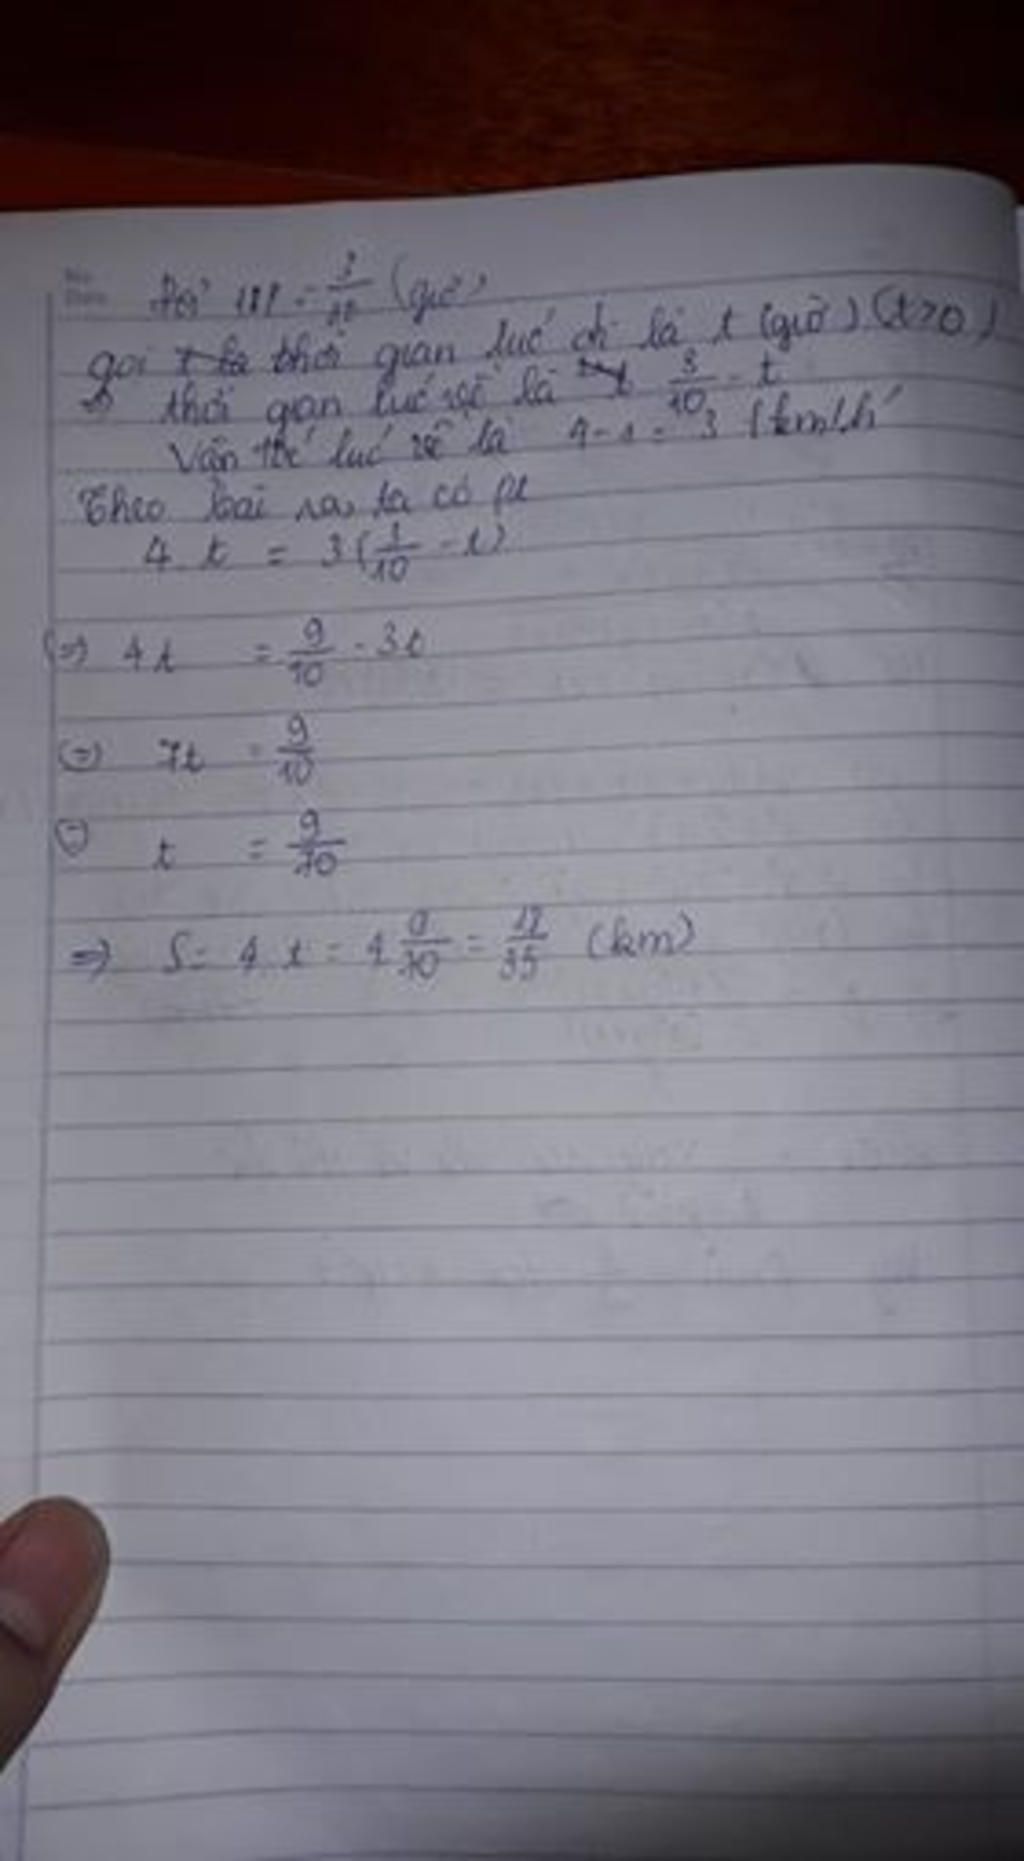 No.
Date.
Đổi 18p = 3/10 (giờ)
gọi t là thời gian lúc đi là t (giờ) (t>0)
=> thời gian lúc về là 3/10 - t
Vận tốc lúc về là 4-1=3 (km/h)
Theo bài ra, ta có pt
4 t = 3(3/10 - t)
(=) 4t = 9/10 - 3t
(=) 7t = 9/10
(=) t = 9/70
=> S = 4 t = 4 9/70 = 18/35 (km)